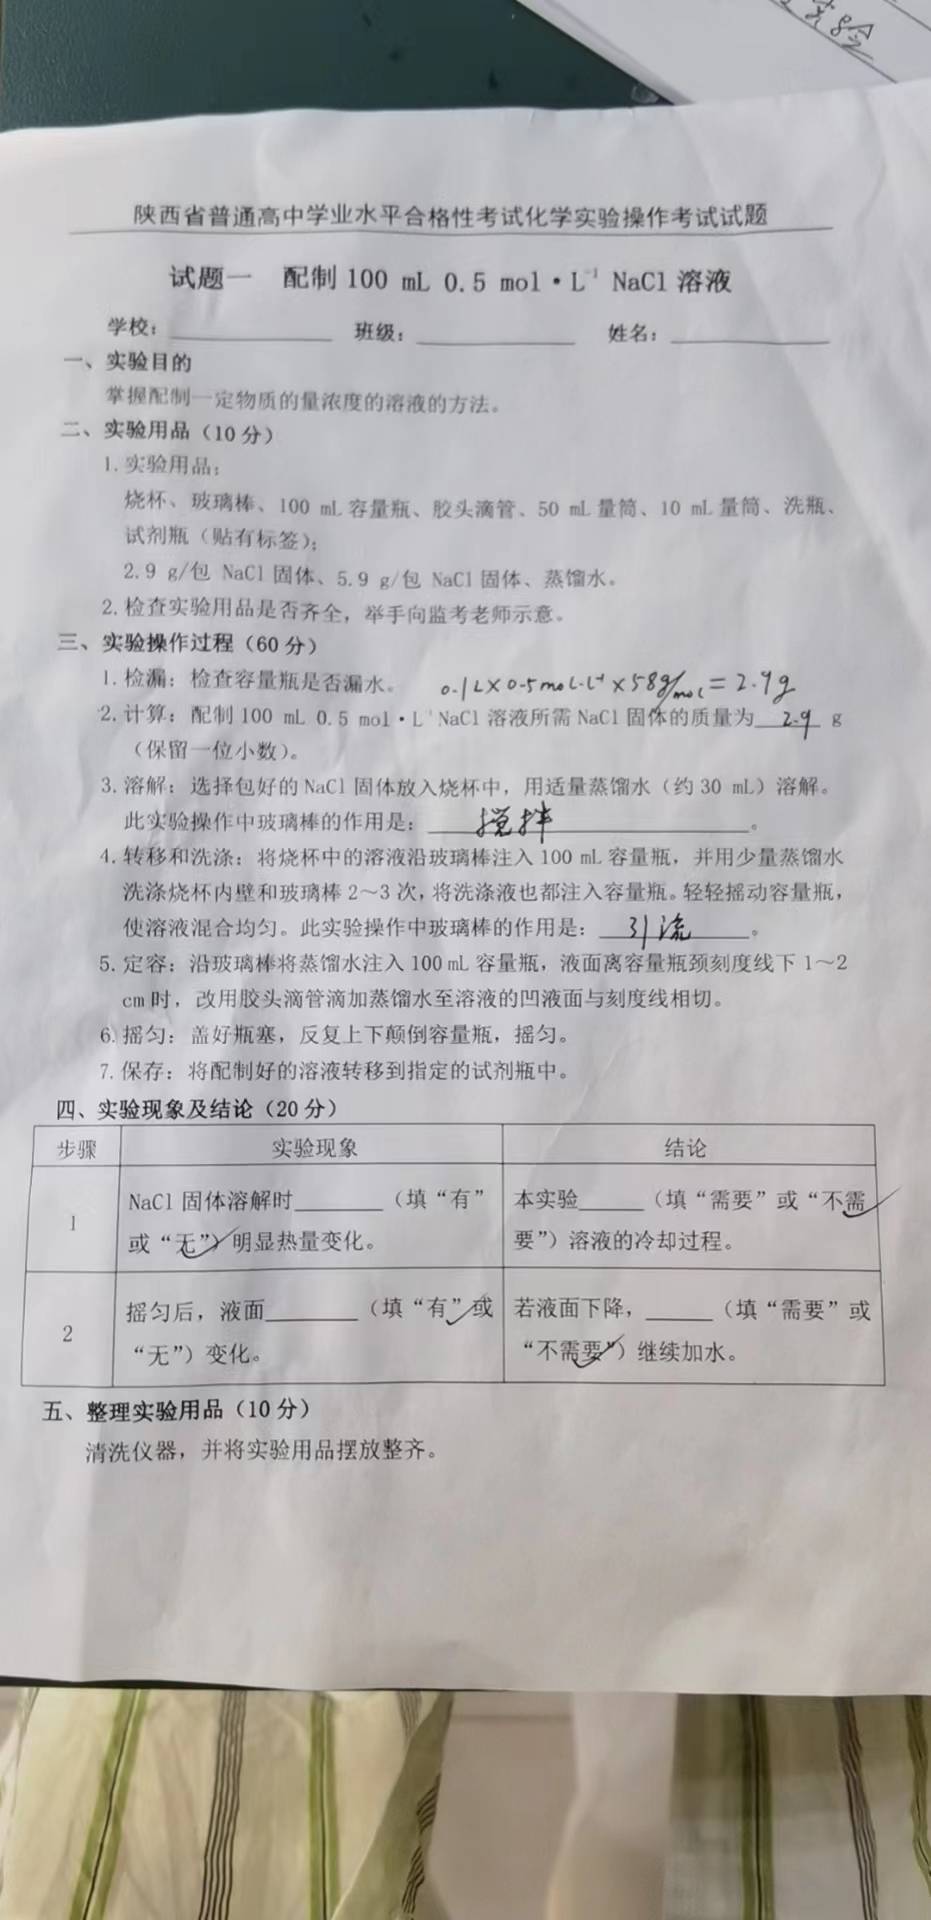 实验
陕西省普通高中学业水平合格性考试化学实验操作考试试题
试题一 配制 100 mL 0.5 mol·L⁻¹ NaCl 溶液
学校：________ 班级：________ 姓名：________
一、实验目的
掌握配制一定物质的量浓度的溶液的方法。
二、实验用品（10 分）
1. 实验用品：
烧杯、玻璃棒、100 mL 容量瓶、胶头滴管、50 mL 量筒、10 mL 量筒、洗瓶、
试剂瓶（贴有标签）；
2.9 g/包 NaCl 固体、5.9 g/包 NaCl 固体、蒸馏水。
2. 检查实验用品是否齐全，举手向监考老师示意。
三、实验操作过程（60 分）
1. 检漏：检查容量瓶是否漏水。 0.1L×0.5mol·L⁻¹×58g/mol=2.9g
2. 计算：配制 100 mL 0.5 mol·L⁻¹ NaCl 溶液所需 NaCl 固体的质量为 2.9 g
（保留一位小数）。
3. 溶解：选择包好的 NaCl 固体放入烧杯中，用适量蒸馏水（约 30 mL）溶解。
此实验操作中玻璃棒的作用是：搅拌。
4. 转移和洗涤：将烧杯中的溶液沿玻璃棒注入 100 mL 容量瓶，并用少量蒸馏水
洗涤烧杯内壁和玻璃棒 2～3 次，将洗涤液也都注入容量瓶。轻轻摇动容量瓶，
使溶液混合均匀。此实验操作中玻璃棒的作用是：引流。
5. 定容：沿玻璃棒将蒸馏水注入 100 mL 容量瓶，液面离容量瓶颈刻度线下 1～2
cm 时，改用胶头滴管滴加蒸馏水至溶液的凹液面与刻度线相切。
6. 摇匀：盖好瓶塞，反复上下颠倒容量瓶，摇匀。
7. 保存：将配制好的溶液转移到指定的试剂瓶中。
四、实验现象及结论（20 分）
步骤 实验现象 结论
1
NaCl 固体溶解时________（填“有”
或“无”）明显热量变化。
本实验______（填“需要”或“不需
要”）溶液的冷却过程。
2
摇匀后，液面________（填“有”或
“无”）变化。
若液面下降，______（填“需要”或
“不需要”）继续加水。
五、整理实验用品（10 分）
清洗仪器，并将实验用品摆放整齐。